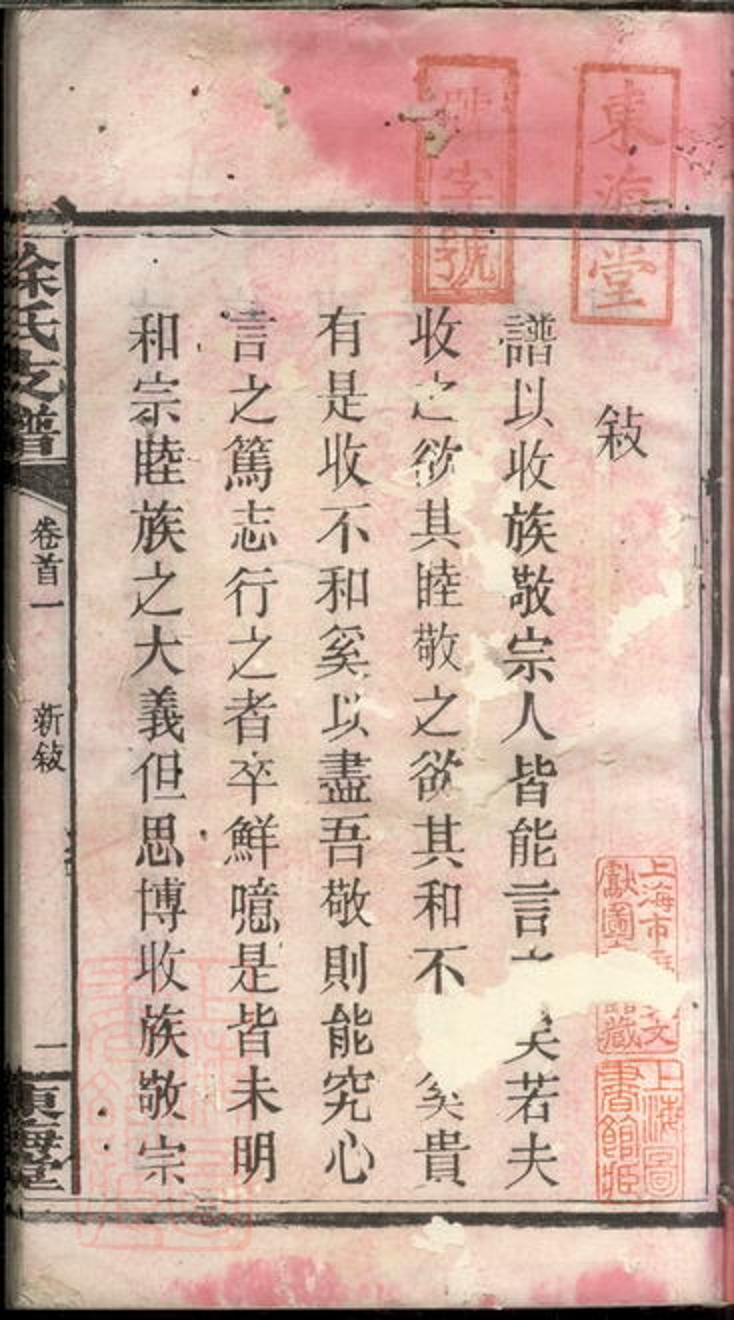 東海堂
號
敍
譜以收族敬宗人皆能言之矣若夫
收之欲其睦敬之欲其和不奚貴
有是收不和奚以盡吾敬則能究心
言之篤志行之者卒鮮噫是皆未明
和宗睦族之大義但思博收族敬宗
徐氏支譜
卷首一
新敍
一
東海堂
上海市
獻圖
藏
上海圖
書館